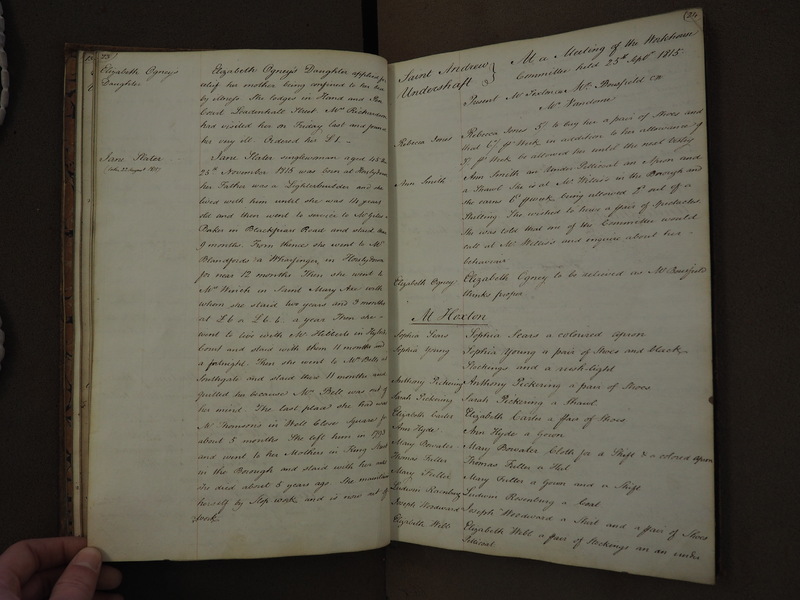 23
Elizabeth Ogney's
Daughter
Elizabeth Ogney's Daughter applied for
relief her mother being confined to her bed
by illness She lodges in Hand and Pen
Court Leadenhall Street. Mr Richardson
had visited her on Friday last and found
her very ill. Ordered her £1.
Jane Slater
Jane Slater singlewoman aged 45 the
25th November 1815 was born at Horslydown
her Father was a Lighterbuilder and she
lived with them until she was 14 years
old and then went to service to Mr Giles
Baker in Blackfriars Road and staid
9 months. From thence she went to Mr
Blandfords a Wharfinger in Horslydown
for near 12 months. Then she went to
Mrs Winch in Saint Mary Axe with
whom she staid two years and 3 months
at £6 a year Then she
went to live with Mr Hibberts in
Court and staid with them 11 months and
a fortnight. Then she went to Mr Bells at
Southgate and staid there 11 months and
quitted her because Mrs Bell was out of
her mind. The last place she had was
Mr Thomsons in Well Close Square for
about 5 months She left him in 1795
and went to her Mothers in King Street
in the Borough and staid with her until
she died about 8 years ago. She maintains
herself by Slop work and is now out of
work.
24
Saint Andrew
Undershaft
At a Meeting of the Workhouse
Committee held 25th Septr 1815.
Present Mr
Mr
Rebecca Jones
Rebecca Jones 5/. to buy her a pair of Shoes and
that 6d pr Week in addition to her allowance of
pr Week be allowed her until the next Vestry
Ann Smith
Ann Smith an Under Petticoat an Apron and
a Shawl She is at Mr Willis's in the Borough and
she earns pr week being allowed 2d out of a
Shilling. She wished to have a pair of Spectacles
She was told that one of the Committee would
call at Mr Willis's and enquire about her
behaviour
Elizabeth Ogney
Elizabeth Ogney to be relieved as Mr Bousfield
thinks proper.
At Hoxton
Sophia Sears
Sophia Sears a coloured apron
Sophia Young
Sophia Young a pair of Shoes and black
Stockings and a nightlight
Anthony Pickering
Anthony Pickering a pair of Shoes
Sarah Pickering
Sarah Pickering a Shawl
Elizabeth Carter
Elizabeth Carter a pair of Shoes
Ann Hyde
Ann Hyde a Gown
Mary Bowater
Mary Bowater Cloth for a Shift & a colored apron
Thomas Fuller
Thomas Fuller a Hat
Mary Fuller
Mary Fuller a Gown and a Shift
Ludwin Rosenburg
Ludwin Rosenburg a Coat
Joseph Woodward
Joseph Woodward a Shirt and a pair of Shoes
Elizabeth Webb
Elizabeth Webb a pair of Stockings an an under
Petticoat